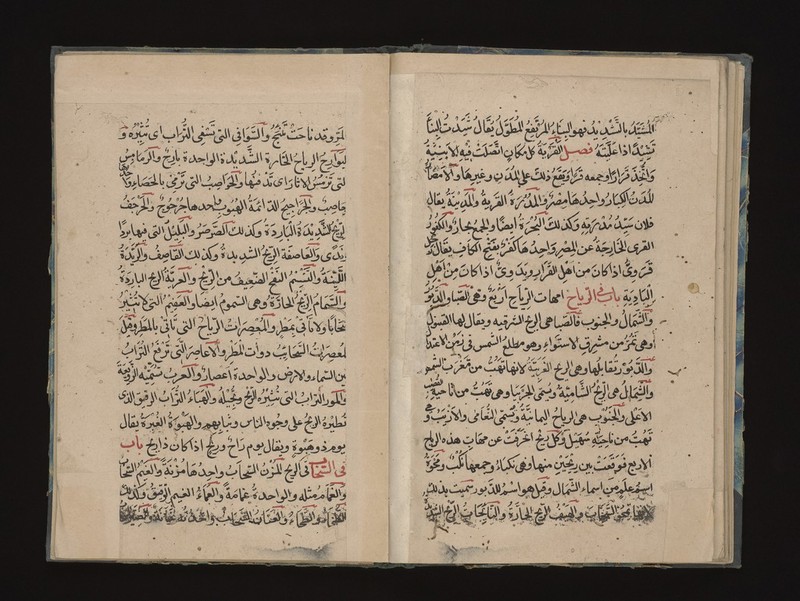 المشيّد بالتشديد فهو البناء المرتفع المطوّل يقال شيّدت البنا
تشييدا اذا عليته فصل القرية كل مكان اتصلت فيه الابنية
واتخذ قرارا وجمعه قرا ويقع ذلك على المدن وغيرها والامصار
المدن الكبار واحدها مصر والمدرة القرية والمدينة يقال
فلان سيد مدرته وكذلك البحرة ايضا والجمع بحار والكفور
القرى الخارجة عن المصر واحدها كفر بفتح الكاف يقال
قروي اذا كان من اهل القرار وبدوي اذا كان من اهل
البادية باب الرياح امهات الرياح اربع وهي الصبا والدبور
والشمال والجنوب فالصبا هي الريح الشرقيه ويقال لها القبول
وهي تمر من مشرق الاستواء وهو مطلع الشمس في زمن الاعتدال
والدبور تقابلها وهي الريح الغربية لانها تهب من مغرب الشمس
والشمال هي الريح الشامية وتسمى الجربيا وهي تهب من ناحية
الاعلى والجنوب هي الرياح اليمانية وتسمى النعامى والازيب
تهب من ناحية سهيل وكل ريح انحرفت عن مهاب هذه الرياح
الاربع فوقعت بين ريحين منها فهي نكباء وجمعها نكب ومحوة
اسم علم من اسماء الشمال وقيل هو اسم للدبور سميت بذلك
لانها تمحو السحاب والهيف الريح الحارة والنايجات الريح
المرّ وقد ناحت تنئج والسوافي التي تسفي التراب اي تثيره و
البوارح الرياح الشديدة الواحدة بارح والروامس
التي ترمس الاثار اي تدفنها والحواصب التي ترمي بالحصباء
حاصب والحراجيج الدائمة الهبوب واحدها حرجوج والحرجف
الريح الشديدة الباردة وكذلك الصرصر والبليل التي فيها برد
وندى والعاصفة الريح الشديدة وكذلك القاصف والريدة
اللينة والنسيم النفخ الضعيف من الريح والعرية الريح الباردة
والسمام الريح الحارة وهي السموم ايضا والعقيم التي لا تثير
سحابا ولا تاتي بمطر والمعصرات الرياح التي تاتي بالمطر وقيل
المعصرات السحايب ذوات المطر والاعاصر التي ترفع التراب
بين السماء والارض والواحدة اعصار والعرب تسميه الزوبعة
والمور التراب التي تثيره الريح وتجيله والهباء التراب الرقيق الذي
تطيره الريح على وجوه الناس وثيابهم والهبوة الغبرة يقال
يوم ذو هبوة ويقال يوم راح وريح اذا كان ذا ريح باب
في السحاب في الريح المزن السحاب واحدها مزنة والغيم السحاب
والغمام مثله والواحدة غمامة والعماء الغيم الرقيق وكذلك
الطخاء والعنان السحاب واحدته عنانة